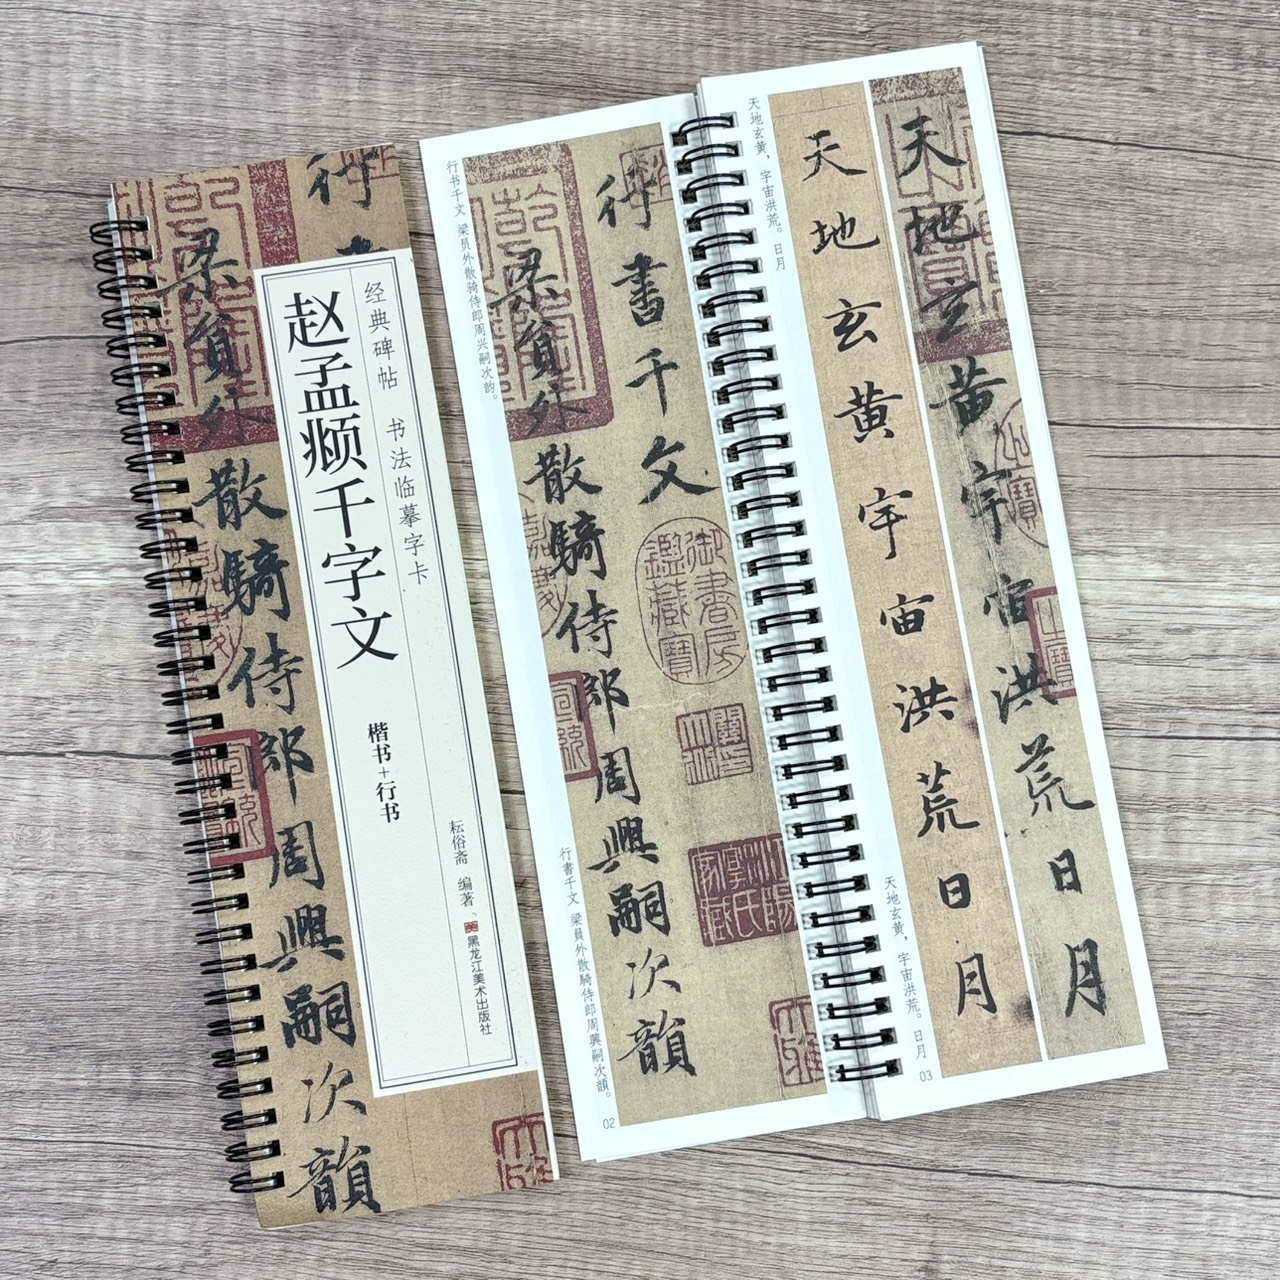 经典碑帖 书法临摹字卡
赵孟頫千字文
楷书+行书
耘俗斋 编著
黑龙江美术出版社
行書
梁員外散騎侍郎周興嗣次韻
行书千文 梁员外散骑侍郎周兴嗣次韵。
行書千文 梁員外散騎侍郎周興嗣次韻。
行書千文
梁員外散騎侍郎周興嗣次韻
御書房鑑藏寶
02
天地玄黄，宇宙洪荒。日月
天地玄黄，宇宙洪荒。日月
天地玄黄宇宙洪荒日月
天地玄黄宇宙洪荒日月
03